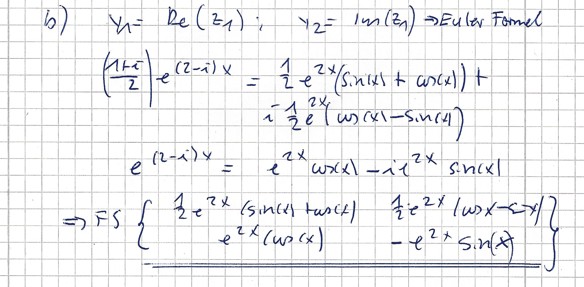 b) y₁ = Re(z₁); y₂ = Im(z₁) ⇒ Euler Formel
((1+i)/2) e^((2-i)x) = 1/2 e^(2x) (sin(x) + cos(x)) +
i 1/2 e^(2x) (cos(x) - sin(x))
e^((2-i)x) = e^(2x) cos(x) - i e^(2x) sin(x)
⇒ FS { 1/2 e^(2x) (sin(x) + cos(x)) 1/2 e^(2x) (cos x -
e^(2x) (cos(x) - e^(2x) sin(x) }